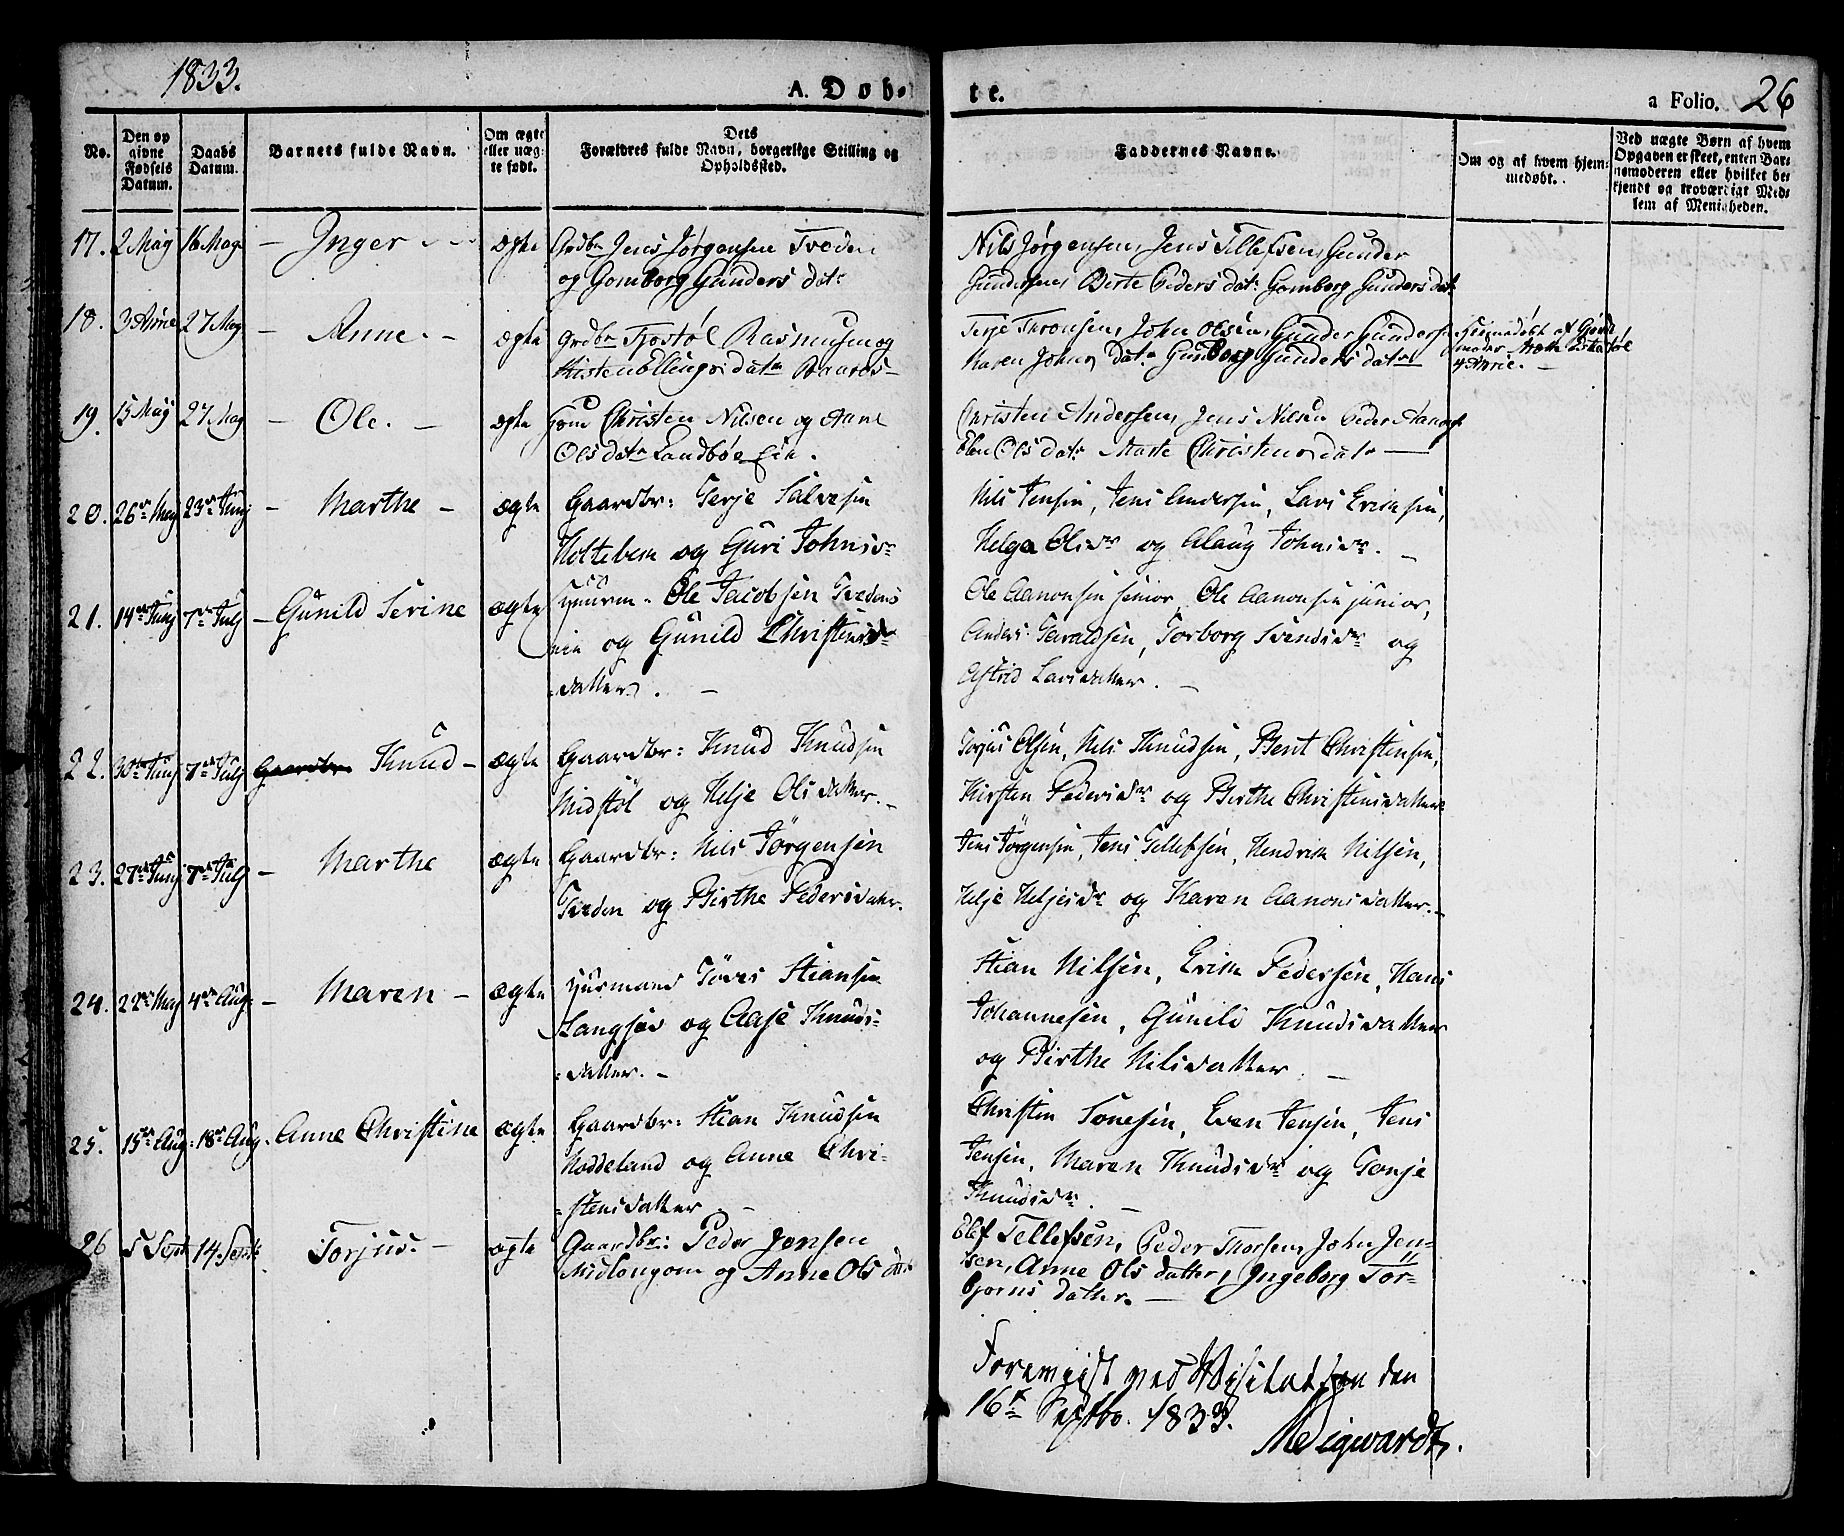 1833.
A. Døb-
te.
a Folio. 26
No.
Den op
givne
Fødsels
Datum.
Daabs
Datum.
Barnets fulde Navn.
Om ægte
eller uæg-
te født.
Dets
Forældres fulde Navn, borgerlige Stilling og
Opholdssted.
Faddernes Navne.
Om og af hvem hjem-
medøbt.
Ved uægte Børn af hvem
Opgaven er skeet, enten Bar-
nemoderen eller hvilket be-
kjendt og troværdigt Med-
lem af Menigheden.
17. 2 May 16 May - Inger - ægte Grdbr Jens Jørgensen Tveden
og Gomborg Gunders dat:
Nils Jørgensen, Jens Tellefsen, Gunder
Gundersen, Berte Peders dat: Gomborg Gunders dat:
18. 27 May - Anne. - ægte Grdbr Tjostøl Rasmusen og
Ellings datr
Terje Thronsen, John Olsen, Gunder Gunders
Karen Johns datr Gunborg Gunders datr
Hiemedøbt af
19. 15 May 27 May - Ole. - ægte Christen Nilsen og
Ols datr Landbøe Eie.
Christen Andersen, Jens Nilsen Peder
Ols datr Marte Christens datr
20. 26de May 23de Junj - Marthe - ægte Gaardbr: Terje Salvesen
Holtebek og Guri Johnsdr
Nils Jensen, Jens Andersen, Lars Eriksen,
Helga Olsdr og Aslaug Johnsdr. -
21. 14de Junj 7de Julj - Gunild Serine ægte Huusm. Ole Jacobsen Tvedens
eie og Gunild Christens-
datter. -
Ole Aanonsen senior, Ole Aanonsen junior,
Anders Taraldsen, Torborg Svendsdr og
Astrid Larsdatter. -
22. 30te Junj 7de Julj Gaardbr. Knud - ægte Gaardbr: Knud Knudsen
Midstøl og Helje Olsdatter. -
Torjus Olsen, Nils Knudsen, Bent Christensen,
Kirsten Pedersdr og Birthe Christensdatter
23. 27de Junj 7de Julj - Marthe ægte Gaardbr: Nils Jørgensen
Tveden og Birthe Pedersdatter.
Jens Jørgensen, Jens Tellefsen, Hendrik Nilsen,
Helje Heljesdr og Karen Aanonsdatter. -
24. 22de May 4de Aug. - Maren - ægte Huusmand Stiansen
Langsøe og Aase Knuds-
datter. -
Stian Nilsen, Erik Pedersen, Hans
Johannesen, Gunild Knudsdatter
og Birthe Nilsdatter. -
25. 15de Aug. 18de Aug. Anne Christine ægte Gaardbr: Stian Knudsen
Noddeland og Anne Chri-
stensdatter -
Christen Tonesen, Even Jensen, Jens
Jensen, Maren Knudsdr og Tonje
Knudsdr. -
26 5 Sept 14. Sept. Torjus. - ægte Gaardbr: Peder Jensen
Midlongom og Anne Ols datr
Olef Tellefsen, Peder Thorsen, John Jen-
sen, Anne Ols datter, Ingeborg Tor-
bjørns datter. -
Foreviist ved Visitatsen den
16de Septbr. 1833.
MSigwardt.